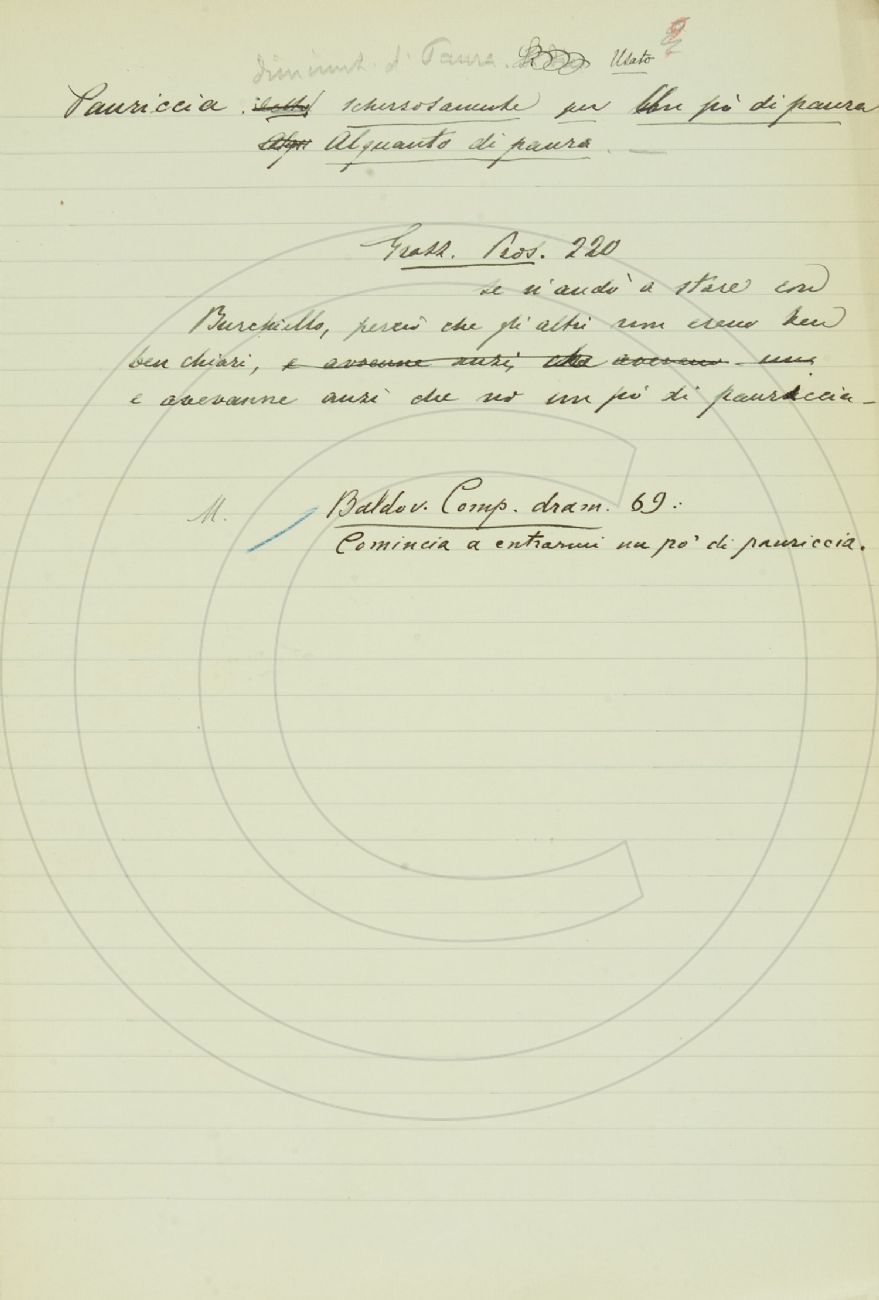 diminut. di Paura. Usato
Pauriccia. detto schersosamente per Un pò di paura
Alqu Alquanto di paura. —
Grazz. Pros. 220
se n'andò a stare con
Burchiello, perciò che gli altri non erano ben
ben chiari, e avevanne anzi, che avevano una
e avevanne anzi che no un pò di pauriccia –
M. Baldov. Comp. dram. 69:
Comincia a entrarmi un po' di pauriccia.